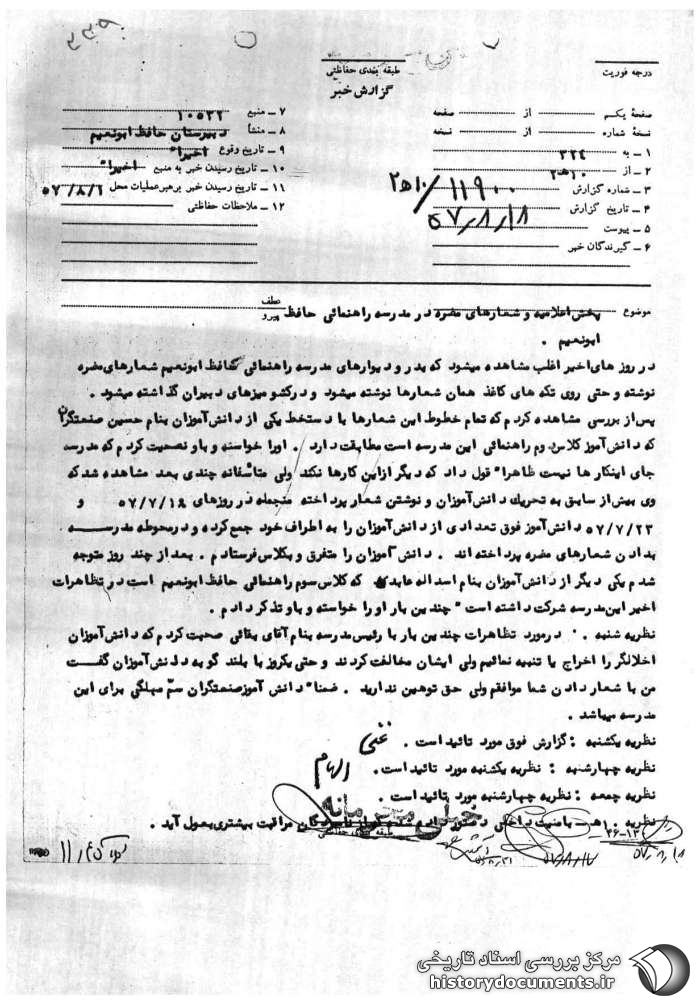 طبقه بندی حفاظتی
درجه فوریت
گزارش خبر
صفحهٔ یکم از صفحه
نسخهٔ شماره از نسخه
۱ – به ۳۲۴
۲ – از ۱۰هـ۲
۳ – شماره گزارش ۱۱۹۰۰/۱۰هـ۲
۴ – تاریخ گزارش ۵۷/۸/۸
۵ – پیوست
۶ – گیرندگان خبر
۷ – منبع ۱۰۵۲۲
۸ – منشأ دبیرستان حافظ ابونعیم
۹ – تاریخ وقوع اخیرا"
۱۰ – تاریخ رسیدن خبر به منبع اخیرا"
۱۱ – تاریخ رسیدن خبر برهبرعملیات محل ۵۷/۸/۶
۱۲ – ملاحظات حفاظتی
موضوع پخش اعلامیه و شعارهای مضره در مدرسه راهنمائی حافظ
عطف
پیرو
ابونعیم .
در روز های اخیر اغلب مشاهده میشود که بدر و دیوارهای مدرسه راهنمائی حافظ ابونعیم شعارهای مضره
نوشته و حتی روی تکه های کاغذ همان شعارها نوشته میشود و درکشو میزهای دبیران گذاشته میشود .
پس از بررسی مشاهده کردم که تمام خطوط این شعارها با دستخط یکی از دانش آموزان بنام حسین صنعتگران
که دانش آموز کلاس دوم راهنمائی این مدرسه است مطابقت دارد . اورا خواسته و باو نصحیت کردم که مدرسه
جای اینکار ها نیست ظاهرا" قول داد که دیگر ازاین کارها نکند ولی متأسفانه چندی بعد مشاهده شد که
وی بیش از سابق به تحریك دانش آموزان و نوشتن شعار پرداخته منجمله در روزهای ۵۷/۷/۱۶ و
۵۷/۷/۲۳ دانش آموز فوق تعدادی از دانش آموزان را به اطراف خود جمع کرده و درمحوطه مدرسه
بدادن شعارهای مضره پرداخته اند . دانش آموزان را متفرق و بکلاس فرستادم . بعد از چند روز متوجه
شدم یکی دیگر از دانش آموزان بنام اسداله عابد که کلاس سوم راهنمائی حافظ ابونعیم است در تظاهرات
اخیر این مدرسه شرکت داشته است " چندین بار او را خواسته و باو تذکر دادم .
نظریه شنبه . درمورد تظاهرات چندین بار با رئیس مدرسه بنام آقای بقائی صحبت کردم که دانش آموزان
اخلالگر را اخراج یا تنبیه نمائیم ولی ایشان مخالفت کردند و حتی یکروز با بلند گو به دانش آموزان گفت
من با شعار دادن شما موافقم ولی حق توهین ندارید . ضمنا" دانش آموز صنعتگران سمّ مهلگی برای این
مدرسه میباشد .
نظریه یکشنبه : گزارش فوق مورد تائید است .
نظریه چهارشنبه : نظریه یکشنبه مورد تائید است . الهام
نظریه جمعه : نظریه چهارشنبه مورد تائید است .
خیلی محرمانه
مراقبت بیشتری بعمول آید .
طبقه بندی حفاظتی
مرکز بررسی اسناد تاریخی
historydocuments.ir